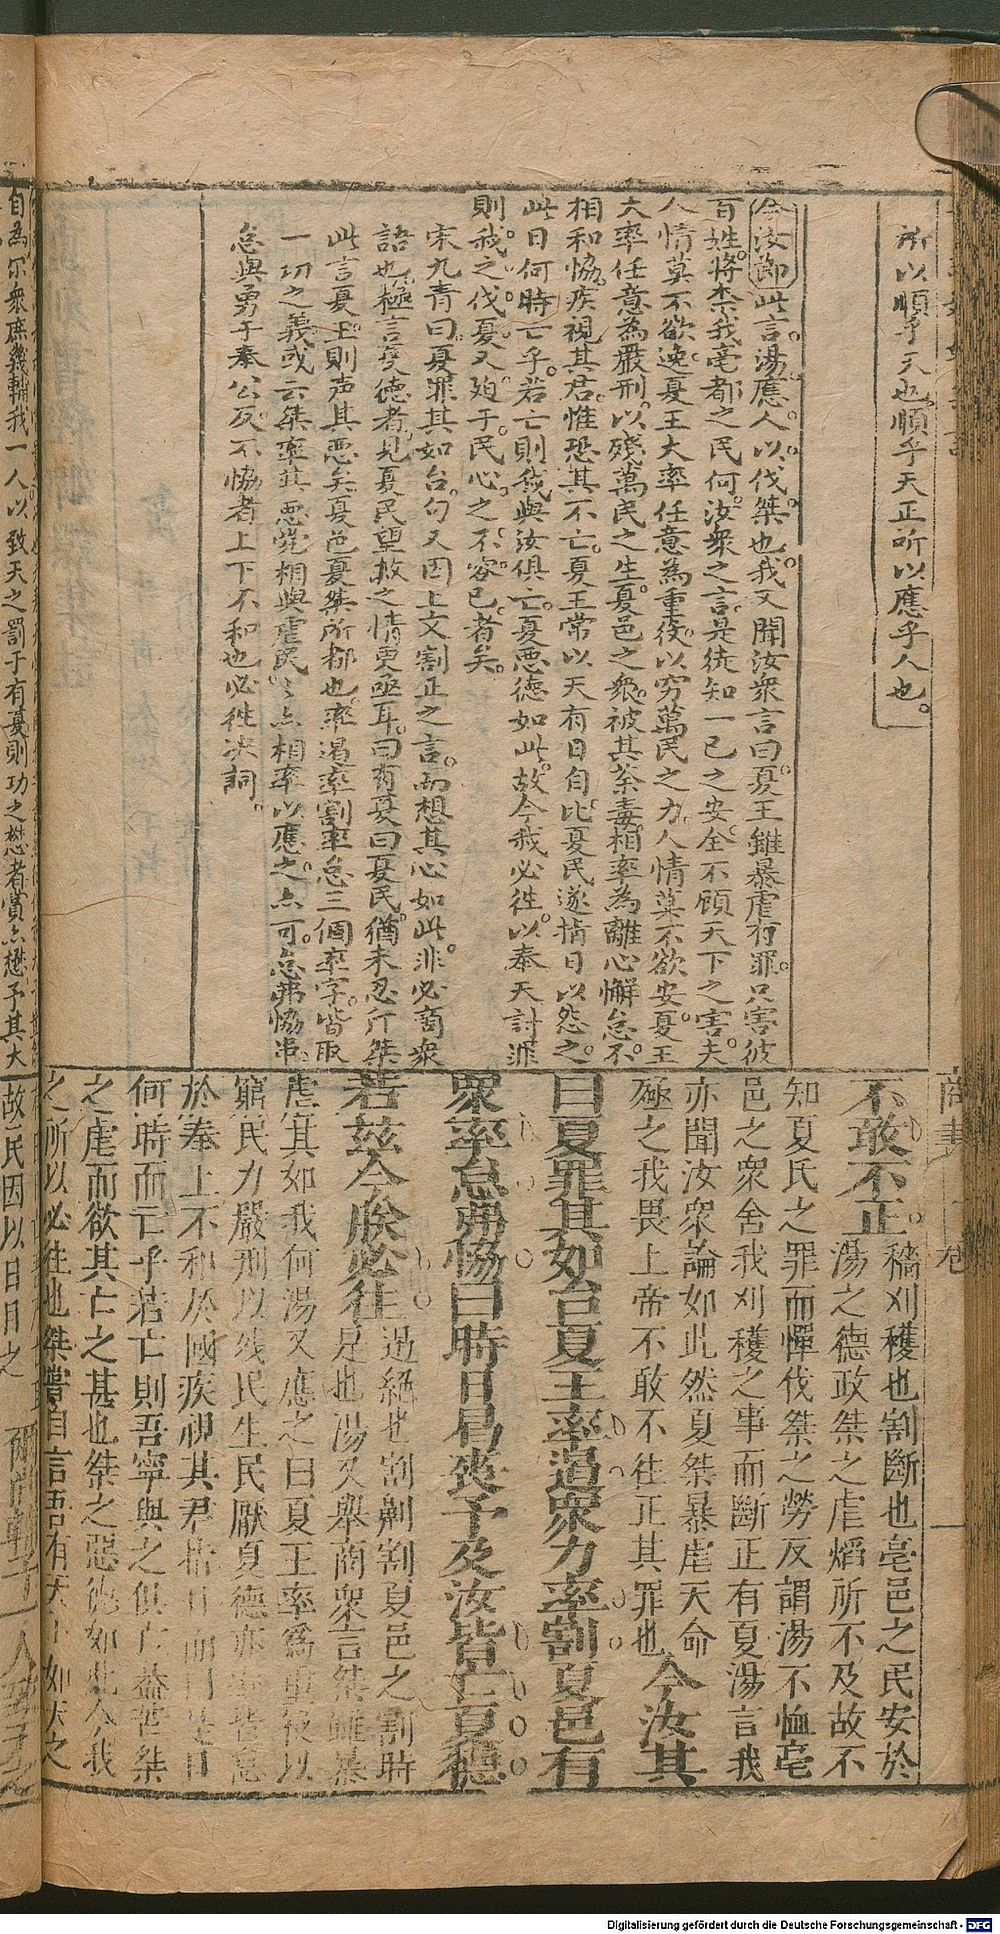 所以順乎天也順乎天正所以應乎人也。
今汝節此言湯應人以伐桀也我又聞汝衆言曰夏王雖暴虐有罪只害彼
百姓將柰我亳都之民何汝衆之言是徒知一己之安全不顧天下之害夫
人情莫不欲逸夏王大率任意為重役以窮萬民之力人情莫不欲安夏王
大率任意為嚴刑以殘萬民之生夏邑之衆被其荼毒相率為離心懈怠不
相和恊疾視其君惟恐其不亡夏王常以天有日自比夏民遂指日以怨之
此日何時亡乎若亡則我與汝俱亡夏悪德如此故今我必徃以奉天討罪
則我之伐夏又殉于民心之不容已者矣
宋九青曰夏罪其如台句又因上文割正之言而想其心如此非必商衆
語也極言夏德者見夏民望救之情更亟耳曰有夏曰夏民猶未忍斥桀
此言夏王則声其悪矣夏邑夏桀所都也率遏率割率怠三個率字皆取
一切之義或云桀率其悪党相與虐民民亦相率以應之亦可怠弗恊串
怠與勇于奉公反不恊者上下不和也必徃决詞。
商書 一卷
不敢不正 穡刈穫也割斷也亳邑之民安於
湯之德政桀之虐熖所不及故不
知夏氏之罪而憚伐桀之勞反謂湯不恤亳
邑之衆舍我刈穫之事而斷正有夏湯言我
亦聞汝衆論如此然夏桀暴虐天命
殛之我畏上帝不敢不徃正其罪也 今汝其
曰夏罪其如台夏王率遏衆力率割夏邑有
衆率怠弗恊曰時日曷喪予及汝皆亡夏德
若茲今朕必往 遏絕也割劓割夏邑之割時
是也湯又舉商衆言桀雖暴
虐其如我何湯又應之曰夏王率爲重役以
窮民力嚴刑以殘民生民厭夏德亦率皆怠
於奉上不和於國疾視其君指日而曰是日
何時而亡乎若亡則吾寧與之俱亡蓋苦桀
之虐而欲其亡之甚也桀之惡德如此今我
之所以必往也桀嘗自言吾有天下如天之
自為尔衆庶幾輔我一人以致天之罰于有夏則功之懋者賞亦懋予其大
故民因以日目之 爾尚輔予一人致天之
Digitalisierung gefördert durch die Deutsche Forschungsgemeinschaft - DFG